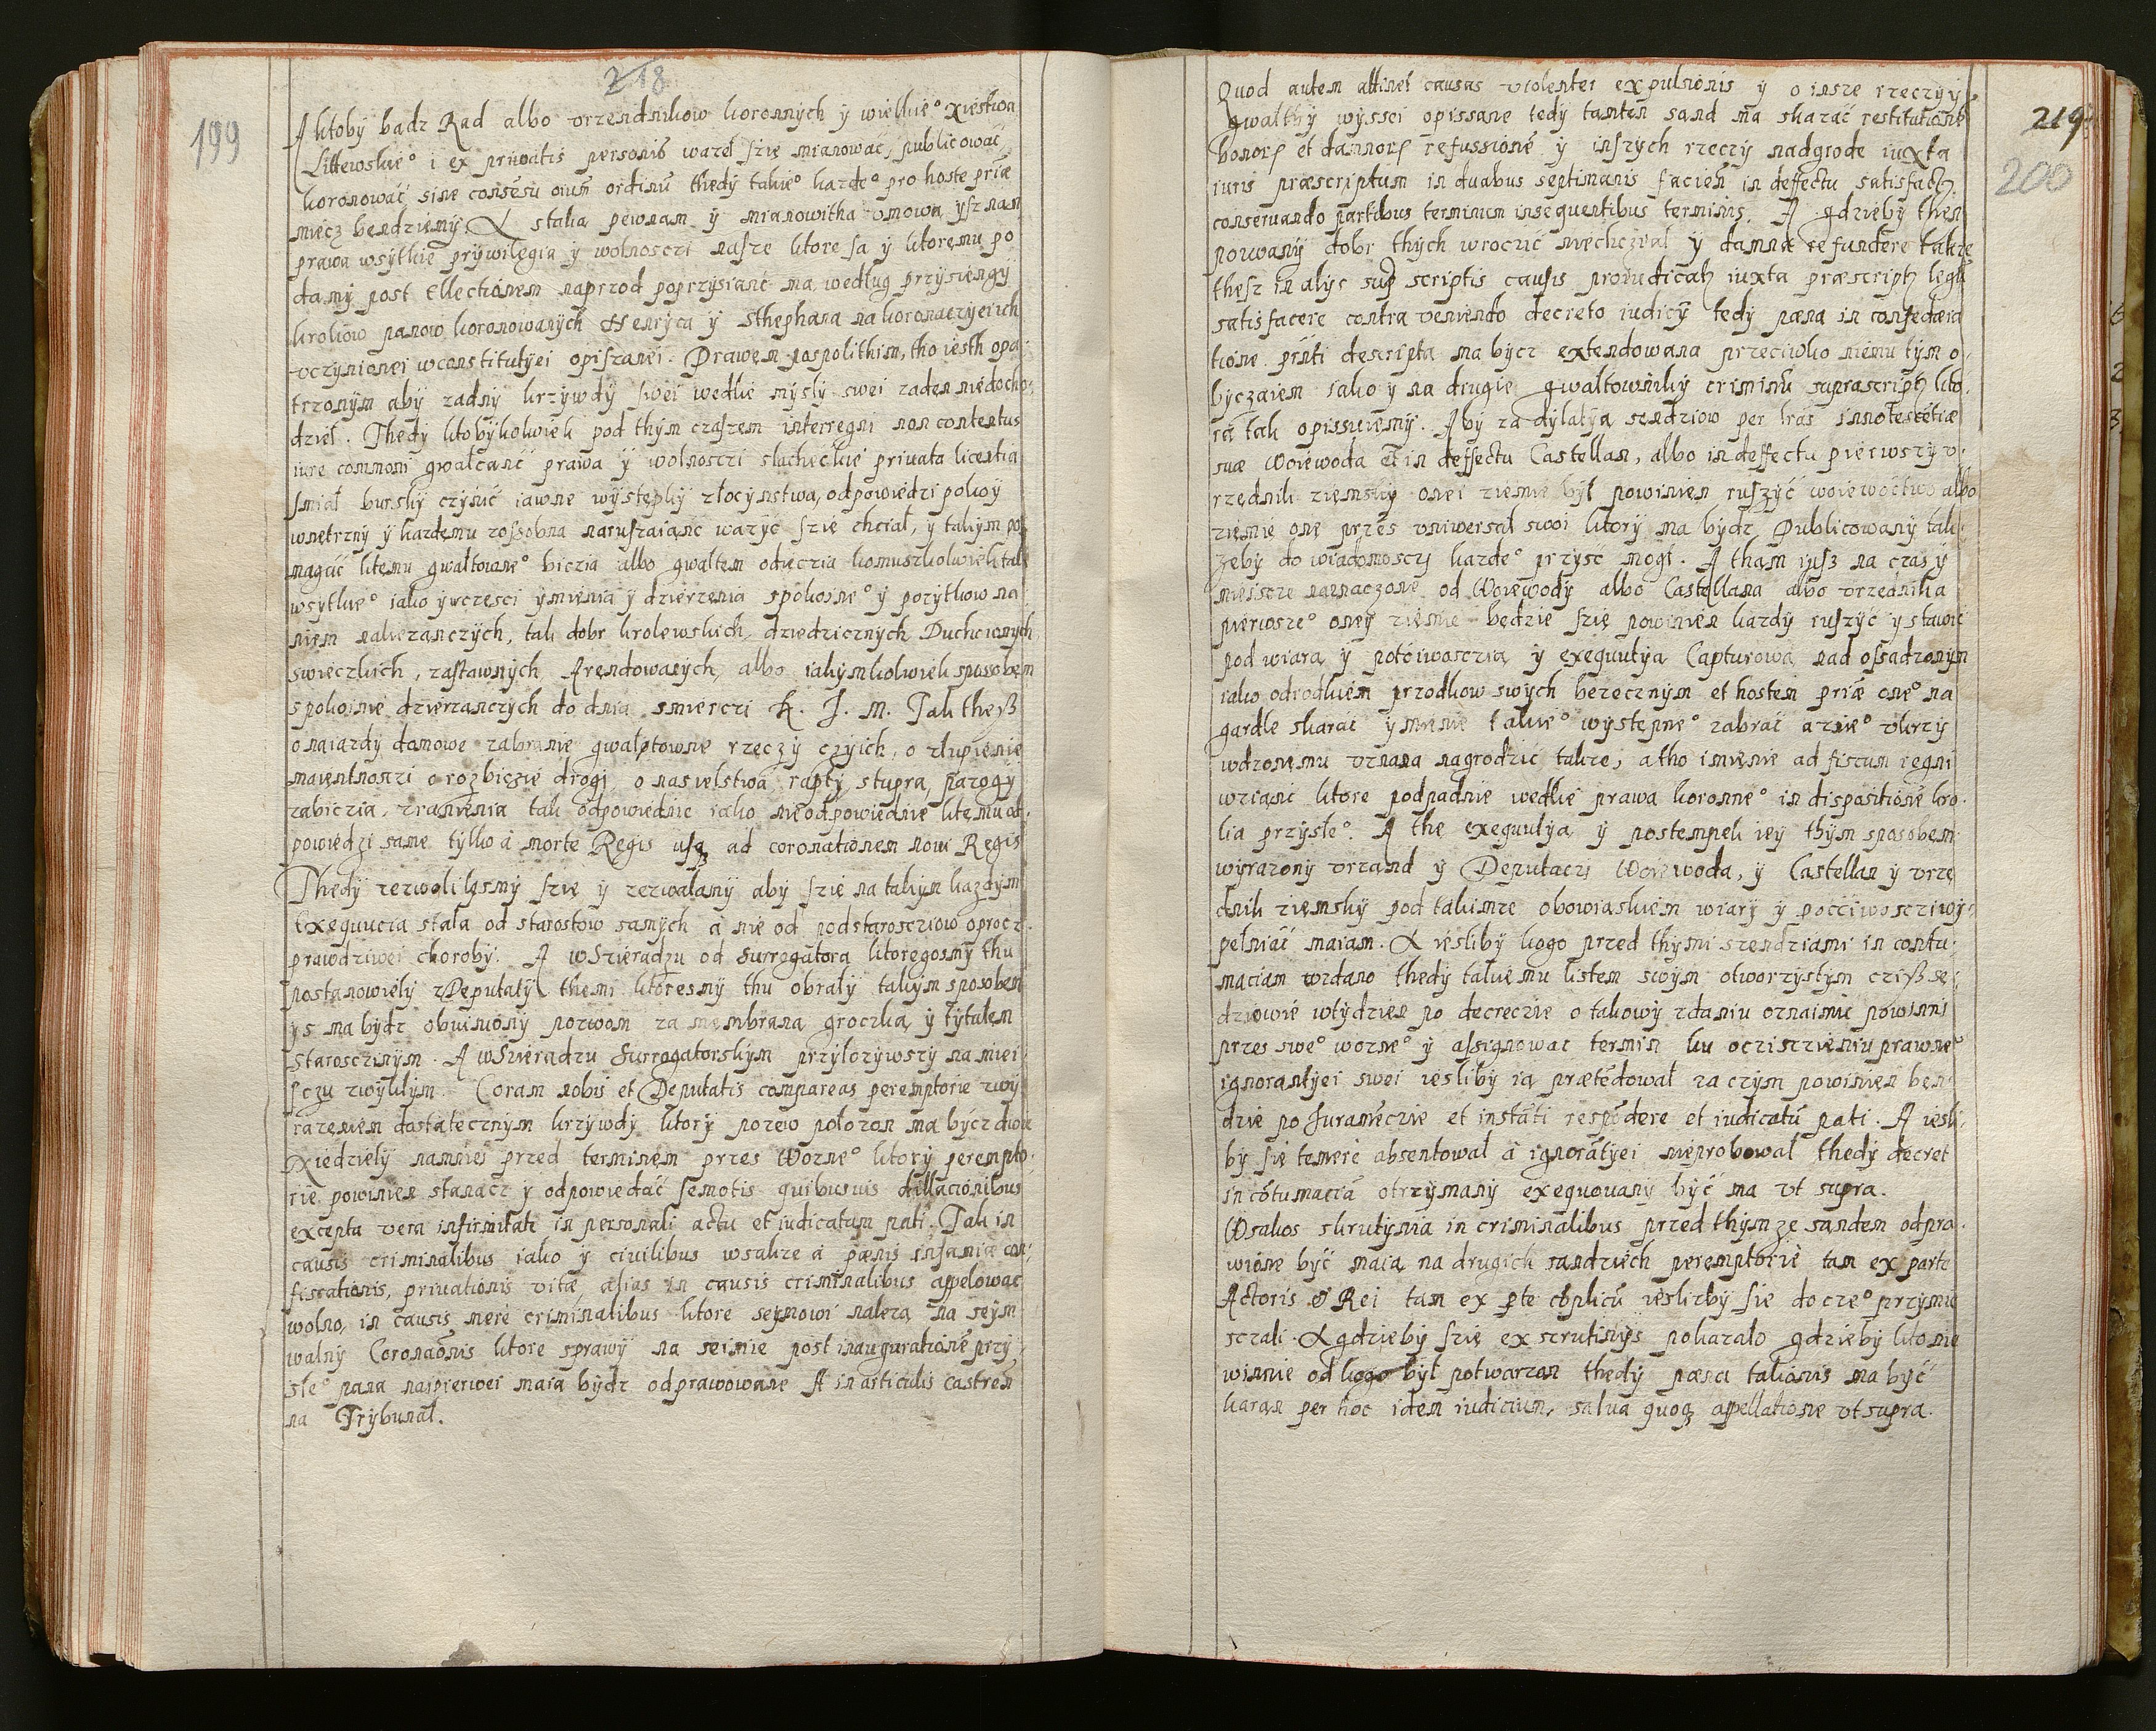 218
199
A ktoby bądz Rad albo vrzendnikow koronnych ÿ wielkie° Xięstwa
Littewskie° i ex priuatis personis ważeł ſzię mianować, publicować,
koronować, sine cońsesu oium̃ ordinũ thedÿ takie° kazde° pro hoste priæ
miecz bendziemÿ. A z takią pewnam ÿ mianowitha vmową ÿſz nam
prawa wsÿtkie prÿwilegia ÿ wolnosczi nasze ktore ſa ÿ ktoremu po
damÿ post Ellectionem naprzod poprzÿsianć ma, według przÿsiengÿ
krolow panow koronowanÿch Henrÿca ÿ Sthephana na koronaczÿeich
vczÿnionei wconstitutÿei opiſzanei. Prawem pospolithim, tho iesth opa¬
trzonÿm abÿ zadnÿ krzÿwdÿ swei wedlie mÿslÿ swei zaden niedocho¬
dzieł. Thedÿ ktobÿkolwiek pod thÿm czaſzem interregni non contentus
iure commoni gwałcanć prawa ÿ wolnosczi slacheckie priuata licentia
ſmiał burskÿ czÿnić iawne wÿstepkÿ złocÿnstwa, odpowiedzi pokoÿ
wnętrznÿ ÿ kazdemu zoſsobna naruſzaianc wazÿc ſzie chciał, ÿ takÿm po¬
magać ktemu gwałtowne° biczia albo gwałtem odieczia komuszkolwiek tak
wsÿtkie° iako ÿ wczesci ÿmienia ÿ dzierzenia spokoine° ÿ pozÿtkow na
niem nalezanczÿch, tak dobr krolewskich, dziedzicznÿch Duchownÿch
swieczkich, zaſtawnÿch Arendowanÿch, albo iakÿmkolwiek sposobem
spokoinie dzierzanczÿch do dnia smierczi K. J. M. Tak theſz
o naiazdÿ domowe zabranie gwałptowne rzeczÿ czÿich, o złupienie
maientnosczi o rozbięzie drogi, o nasielstwa, raptÿ, stupra, pazogÿ
zabiczia, zranienia tak odpowiednie iako nieodpowiednie ktemu od¬
powiedzi same tÿlko à morte Regis uſq̨ ad coronationem noui Regis
Thedÿ zezwolilismÿ ſzię ÿ zezwalamÿ abÿ ſzie na takim kazdÿm
Exequucia stała od starostow samÿch à nie od podstarosczÿow oprocz
prawdziwei chorobÿ. A wSzieradzu od Surrogatora ktoregosmÿ thu
postanowielÿ zDeputatÿ themi ktoresmÿ thu obralÿ takÿm sposobem
ÿs ma bÿdz obwinionÿ pozwan za membrana groczką ÿ tÿtułem
Starosczinÿm. A wSzieradzu Surrogatorskÿm przÿłozÿwszÿ na miei¬
ſczu zwÿkłÿm. Coram nobis et Deputatis compareas peremptorie zwÿ
razeniem dostatecznÿm krzÿwdÿ ktorÿ pozew położon ma bÿcz dwie
Niedzielÿ namniei przed terminem przes Wozne° ktorÿ perempto¬
rie powinien stanacz ÿ odpowiedać ſemotis quibusuis dillacionibus
excepta vera infirmitate in personali actu et iudicatum pati. Tak in
causis criminalibus iako ÿ ciuilibus wsakze à pœnis infamiæ con¬
fiscationis, priuationis vitæ, alias in causis criminalibus appelowac
wolno, in causis mere criminalibus ktore seÿmowi nalezą na seÿm
walnÿ Coronaõnis ktore sprawÿ na seimie post inaugurationẽ przÿ¬
słe° pana naipierwei maia bÿdz odprawowane A in articulis castren̄
na Trÿbunał.
219
200
Quod autem attinet causas violentei expulsionis ÿ o insze rzeczÿ ÿ
gwałtÿ wÿssei opissane tedÿ tamten sand ma skazać restitutionẽ
bonorꝝ et damnorꝝ refussionẽ ÿ inſzych rzeczÿ nadgrode iuxta
iuris præscriptum in duabus septimanis facien̄ in deffectu satisfact̄
conseruando partibus terminum insequentibus terminis. A gdziebÿ then
pozwanÿ dobr thÿch wroczić niechcział ÿ damna refundere takze
theſz in alÿs sup̱ scriptis causis proiudicat̄ iuxta præscript̄ legũ
satisfacere contra veniendo decreto iudicÿ tedÿ pœna in confedera
tione prñti descripta ma bÿcz extendowana przeciwko niemu tÿm o¬
bÿczaiem iako ÿ na drugie gwałtownikÿ criminũ suprascript̄ kto¬
re tak opissuiemÿ. Abÿ za dÿlatÿą sendziow per lras innotescẽtiæ
suæ Woiewoda et in deffectu Castellan, albo in deffectu pierwszÿ v¬
rzędnik ziemskÿ onei ziemie bÿł powinien ruſzÿć woiewodztwo albo
ziemie one przes vniwersał swoi ktorÿ ma bÿdz Publicowanÿ tak
zebÿ do wiadomoscÿ kazde° przÿsc mogł. A tham iuſz na czas ÿ
mieiscze naznaczone od Woiewodÿ albo Castellana albo vrzednika
pierwsze° oneÿ ziemie będzie ſzię powinien kazdÿ ruſzÿć ÿ stawić
pod wiara ÿ pocciwosczią ÿ exequutÿą Capturową nad oſsadzonÿm
iako odrodkiem przodkow swÿch bezecznÿm et hostem priæ one° na
gardle skarać ÿ mienie takie° wÿstepne° zabrać a znie° vkrzÿ
wdzonemu vznana nagrodzić takze, a tho imienie ad fiscum regni
wzianć ktore podpadnie wedlie prawa koronne° in dispositionẽ kro¬
la przÿsłe°. A the exequutÿą ÿ postempek ieÿ thÿm sposobem
wÿrazonÿ vrzand ÿ Deputaczi Woiewoda, ÿ Castellan ÿ vrzę
dnik ziemskÿ pod takimze obowiaskiem wiarÿ ÿ poccziwosczi wÿ¬
pełniać maiam. A iesliby kogo przed thÿmi szendziami in contu¬
maciam wzdano thedÿ takiemu listem swÿm otworzystÿm cziſz se¬
dziowie wtÿdzien po decreczie o takowÿ zdaniu oznaimić powinni
przes swe° wozne° ÿ aſsignowac termin ku ocziscieniu prawne°
ignorantÿei swei iesliby ią prætẽdował za czÿm powinien ben¬
dzie po Juramẽczie et instãti respõdere et iudicatũ pati. A iesli¬
bÿ się temere absentował à ignorãtÿei nieprobował thedÿ decret
in cõtumaciã otrzÿmanÿ exequouanÿ bÿć ma vt supra.
Wsakos skrutÿnia in criminalibus przed thÿmze sandem odpra¬
wione bÿć maią na drugich sandziech peremptorie tam ex parte
Actoris & Rei tam ex p̱te cõplicũ ieslizbÿ ſie do cze° przÿmu
sczali. A gdziebÿ ſzię ex scrutinÿs pokazało gdziebÿ kto nie
winnie od kogo bÿł potwarzan thedÿ pœna talionis ma bÿć
karan per hoc idem iudicium, salua quoq̨ appellatione vt supra.